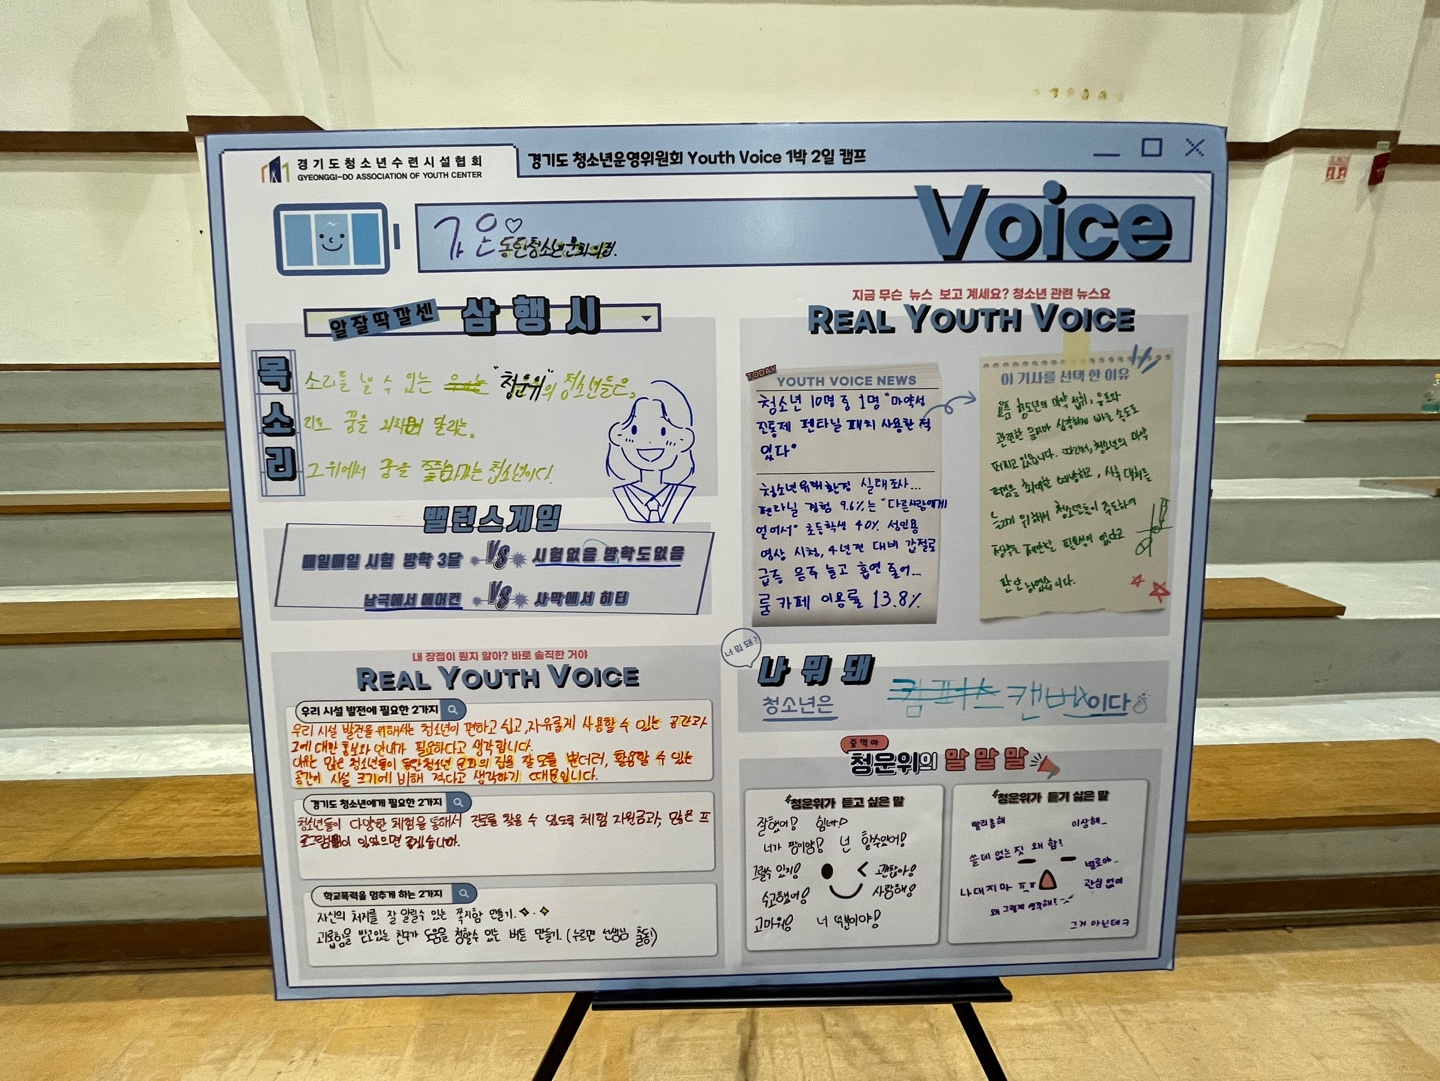 경기도청소년수련시설협회
GYEONGGI-DO ASSOCIATION OF YOUTH CENTER
경기도 청소년운영위원회 Youth Voice 1박 2일 캠프
동안청소년문화의집.
Voice
알잘딱깔센 삼행시
목 소리를 낼 수 있는 "청운위"의 청소년들은,
소 리로 꿈을 외치며 달리는,
리 그 위에서 꿈을 펼쳐나가는 청소년이다!
밸런스게임
매일매일 시험 방학 3달 VS 시험없음 방학도없음
남극에서 에어컨 VS 사막에서 히터
내 장점이 뭔지 알아? 바로 솔직한 거야
REAL YOUTH VOICE
우리 시설 발전에 필요한 2가지
우리 시설 발전을 위해서는 청소년이 편하고 쉽고, 자유롭게 사용할 수 있는 공간과
그에 대한 홍보와 안내가 필요하다고 생각합니다.
많은 청소년들이 동안청소년 문화의집을 잘 모를 뿐더러, 활용할 수 있는
공간이 시설 크기에 비해 적다고 생각하기 때문입니다.
경기도 청소년에게 필요한 2가지
청소년들이 다양한 체험을 통해서 진로를 찾을 수 있도록 체험 자원금과, 많은 프
로그램들이 있었으면 좋겠습니다.
학교폭력을 멈추게 하는 2가지
자신의 처지를 잘 알릴수 있는 쪽지함 만들기.
괴롭힘을 받고있는 친구가 도움을 청할수 있는 버튼 만들기. (누르면 선생님 출동!)
지금 무슨 뉴스 보고 계세요? 청소년 관련 뉴스요
REAL YOUTH VOICE
TODAY
YOUTH VOICE NEWS
청소년 10명 중 1명 "마약성
진통제 펜타닐 패치 사용한 적
있다"
청소년유해환경 실태조사...
펜타닐 경험 9.6%는 "다른사람에게
얻어서" 초등학생 40% 성인용
영상 시청, 4년전 대비 갑절로
급증 음주 늘고 흡연 줄어...
룸 카페 이용률 13.8%
이 기사를 선택 한 이유
요즘 청소년의 마약 섭취, 유포와
관련한 문제가 심각하게 빠른 속도로
퍼지고 있습니다. 따라서, 청소년의 마약
위해서 청소년들이 주도하여
필요성이 있다고
판단하였습니다.
너 뭐 돼?
나 뭐 돼
청소년은 캔버스이다
줄꺽마
청운위의 말 말 말
청운위가 듣고 싶은 말
잘했어! 힘내!
너가 짱이얌! 넌 할수있어!
그럴수 있지! 괜찮아!
수고했어! 사랑해!
고마워! 너 덕분이야!
청운위가 듣기 싫은 말
빨리좀해 이상해..
쓸데 없는 짓 왜 함?
별로야..
나대지 마 ㅠㅠ 관심 없어
왜 그렇게 생각해?
그거 아닌데ㅋ